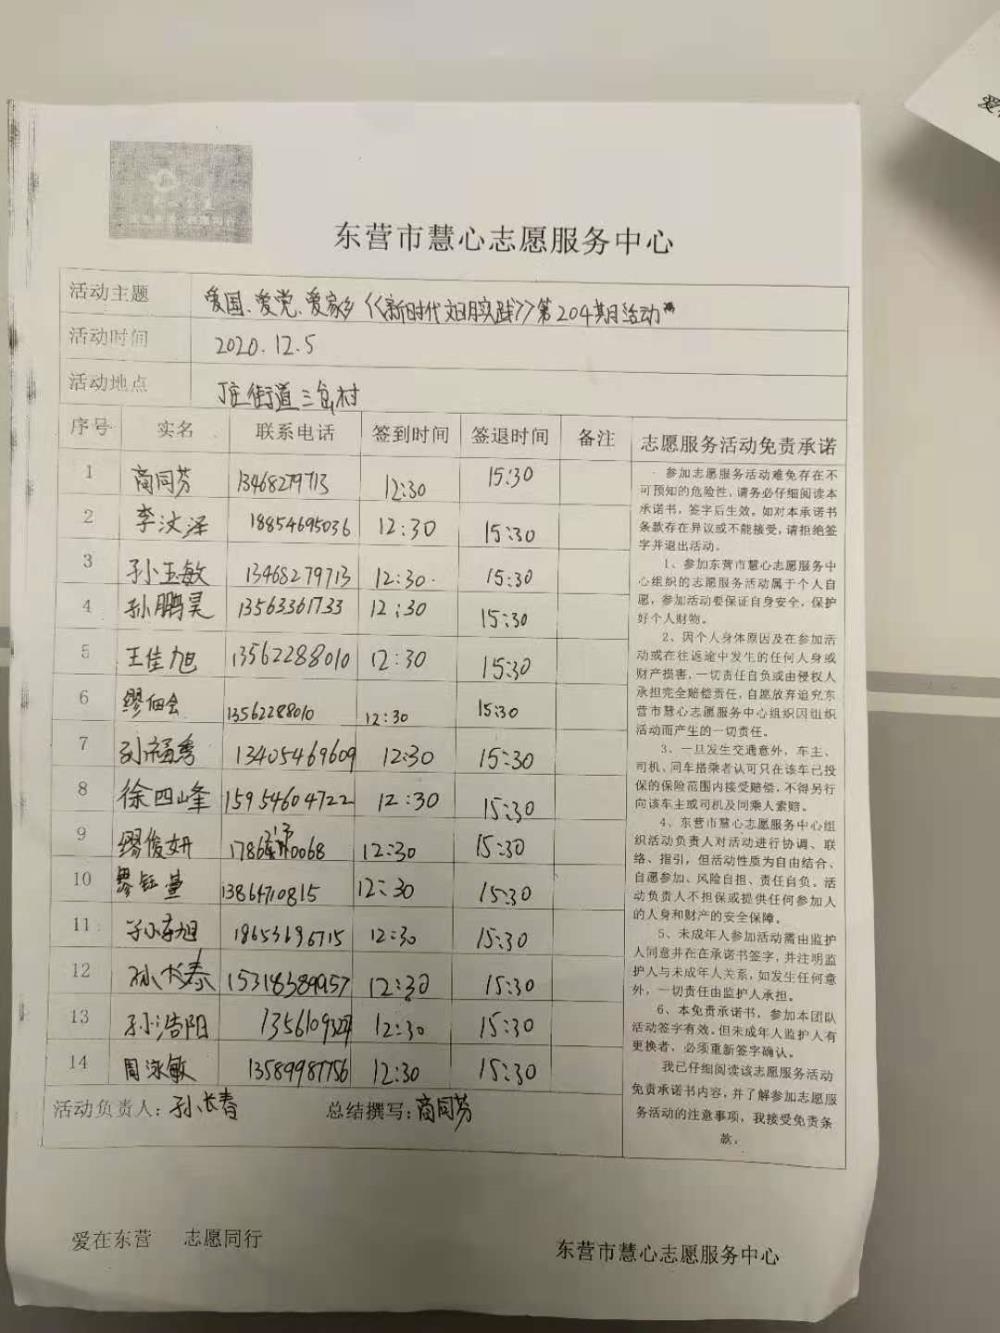 东营市慧心志愿服务中心
活动主题 爱国、爱党、爱家乡《新时代文明实践》第204期活动
活动时间 2020.12.5
活动地点 丁庄街道三岔村
序号 实名 联系电话 签到时间 签退时间 备注 志愿服务活动免责承诺
1 商同芬 13468279713 12:30 15:30
2 李汶泽 18854695036 12:30 15:30
3 孙玉敏 13468279713 12:30 15:30
4 孙鹏昊 13563361733 12:30 15:30
5 王佳旭 13562288010 12:30 15:30
6 缪佃会 13562288010 12:30 15:30
7 孙福秀 13405469609 12:30 15:30
8 徐四峰 15954604722 12:30 15:30
9 缪俊妍 12:30 15:30
10 13864710815 12:30 15:30
11 12:30 15:30
12 孙长春 15318389957 12:30 15:30
13 孙浩阳 12:30 15:30
14 周泳敏 13589987756 12:30 15:30
活动负责人：孙长春 总结撰写：商同芬
参加志愿服务活动难免存在不
可预知的危险性，请务必仔细阅读本
承诺书，签字后生效。如对本承诺书
条款存在异议或不能接受，请拒绝签
字并退出活动。
1、参加东营市慧心志愿服务中
心组织的志愿服务活动属于个人自
愿，参加活动要保证自身安全，保护
好个人财物。
2、因个人身体原因及在参加活
动或在往返途中发生的任何人身或
财产损害，一切责任自负或由侵权人
承担完全赔偿责任，自愿放弃追究东
营市慧心志愿服务中心组织因组织
活动而产生的一切责任。
3、一旦发生交通意外，车主、
司机、同车搭乘者认可只在该车已投
保的保险范围内接受赔偿，不得另行
向该车主或司机及同乘人索赔。
4、东营市慧心志愿服务中心组
织活动负责人对活动进行协调、联
络、指引，但活动性质为自由结合、
自愿参加、风险自担、责任自负。活
动负责人不担保或提供任何参加人
的人身和财产的安全保障。
5、未成年人参加活动需由监护
人同意并在在承诺书签字，并注明监
护人与未成年人关系，如发生任何意
外，一切责任由监护人承担。
6、本免责承诺书，参加本团队
活动签字有效。但未成年人监护人有
更换者，必须重新签字确认。
我已仔细阅读该志愿服务活动
免责承诺书内容，并了解参加志愿服
务活动的注意事项，我接受免责条
款。
爱在东营 志愿同行
东营市慧心志愿服务中心